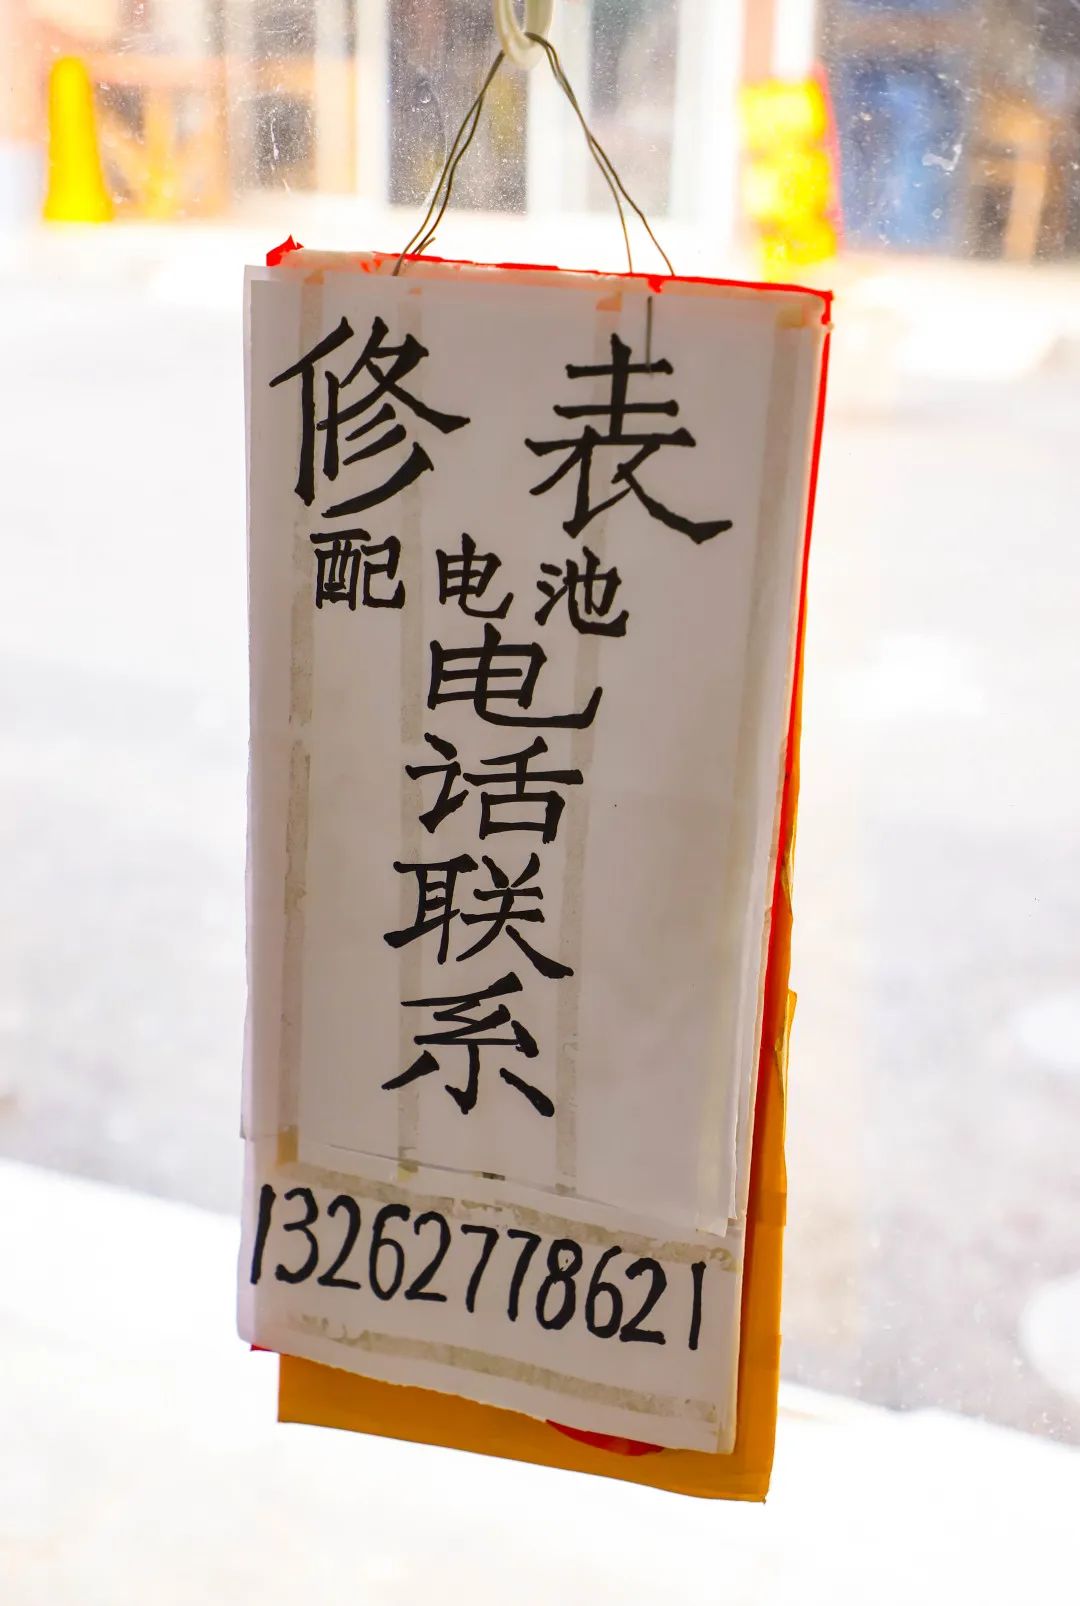 修表
配电池
电
话
联
系
13262778621